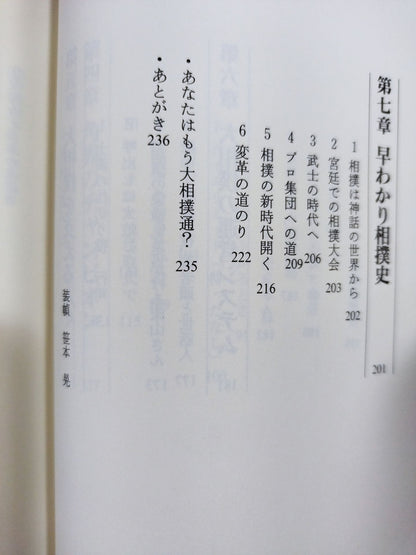 第七章 早わかり相撲史 201
1 相撲は神話の世界から 202
2 宮廷での相撲大会 203
3 武士の時代へ 206
4 プロ集団への道 209
5 相撲の新時代開く 216
6 変革の道のり 222
・あなたはもう大相撲通? 235
・あとがき 236
装幀 笹本 晃